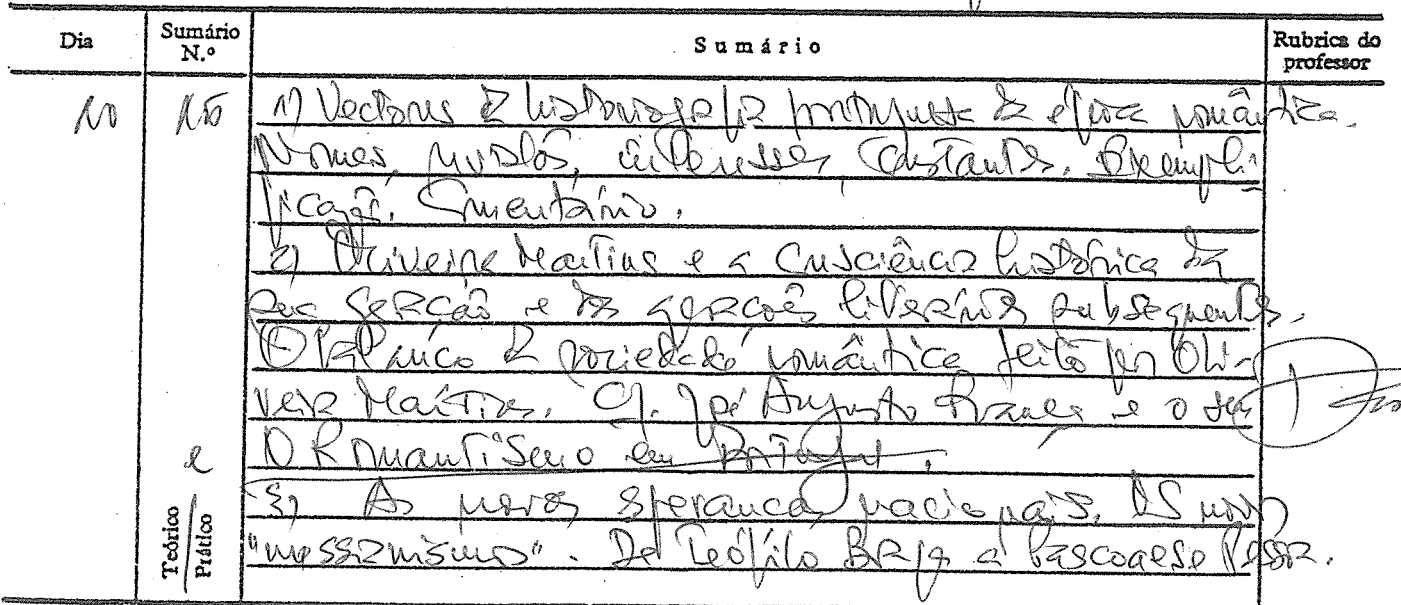 Dia
Sumário N.º
Sumário
Rubrica do professor
10
1) Vectores da historiografia portuguesa da época romântica.
Nomes, modelos, interesses, constantes. Exempli-
ficação. Comentário.
2) Oliveira Martins e a consciência histórica da
sua geração e das gerações literárias subsequentes.
O balanço da sociedade romântica feito por Oli-
veira Martins. Cf. José Augusto França e o seu
O Romantismo em Portugal.
3) As novas esperanças nacionais. Os novos
"messianismos". De Teófilo Braga a Pascoaes e Pessoa.
e
Teórico
Prático